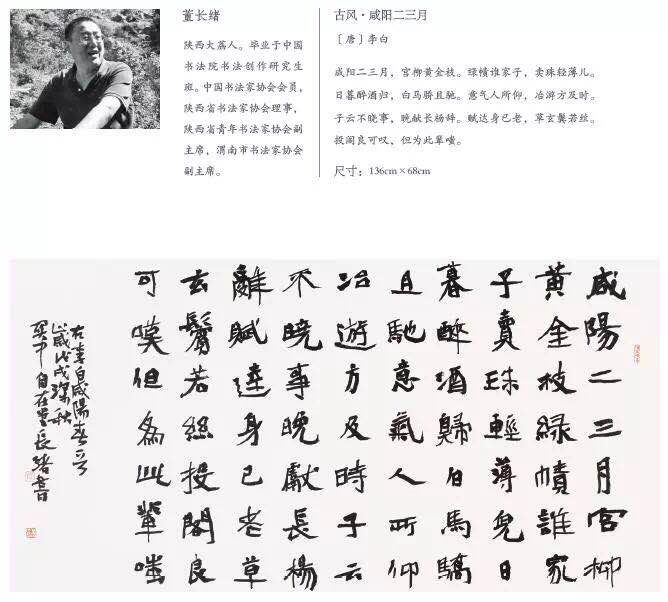 董长绪
陕西大荔人。毕业于中国
书法院书法创作研究生
班。中国书法家协会会员，
陕西省书法家协会理事，
陕西省青年书法家协会副
主席，渭南市书法家协会
副主席。
古风·咸阳二三月
［唐］李白
咸阳二三月，宫柳黄金枝。绿帻谁家子，卖珠轻薄儿。
日暮醉酒归，白马骄且驰。意气人所仰，冶游方及时。
子云不晓事，晚献长杨辞。赋达身已老，草玄鬓若丝。
投阁良可叹，但为此辈嗤。
尺寸：136cm×68cm
咸陽二三月宮柳
黃金枝綠幘誰家
子賣珠輕薄兒日
暮醉酒歸白馬驕
且馳意氣人所仰
冶遊方及時子云
不曉事晚獻長楊
辭賦達身已老草
玄鬢若絲投閣良
可嘆但為此輩嗤
右李白咸陽
歲戊戌深秋
自在堂長緒書